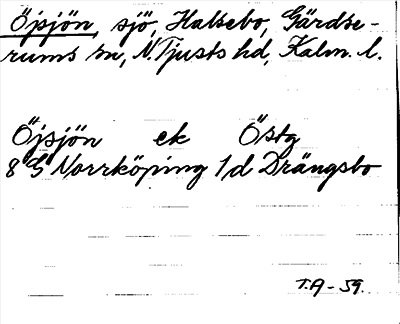 Öjsjön, sjö, Halsebo, Gärdse-
rums sn, N. Tjusts hd, Kalm. l.
Öjsjön ek Östg
8 G Norrköping 1 d Drängsbo
T.A - 59.